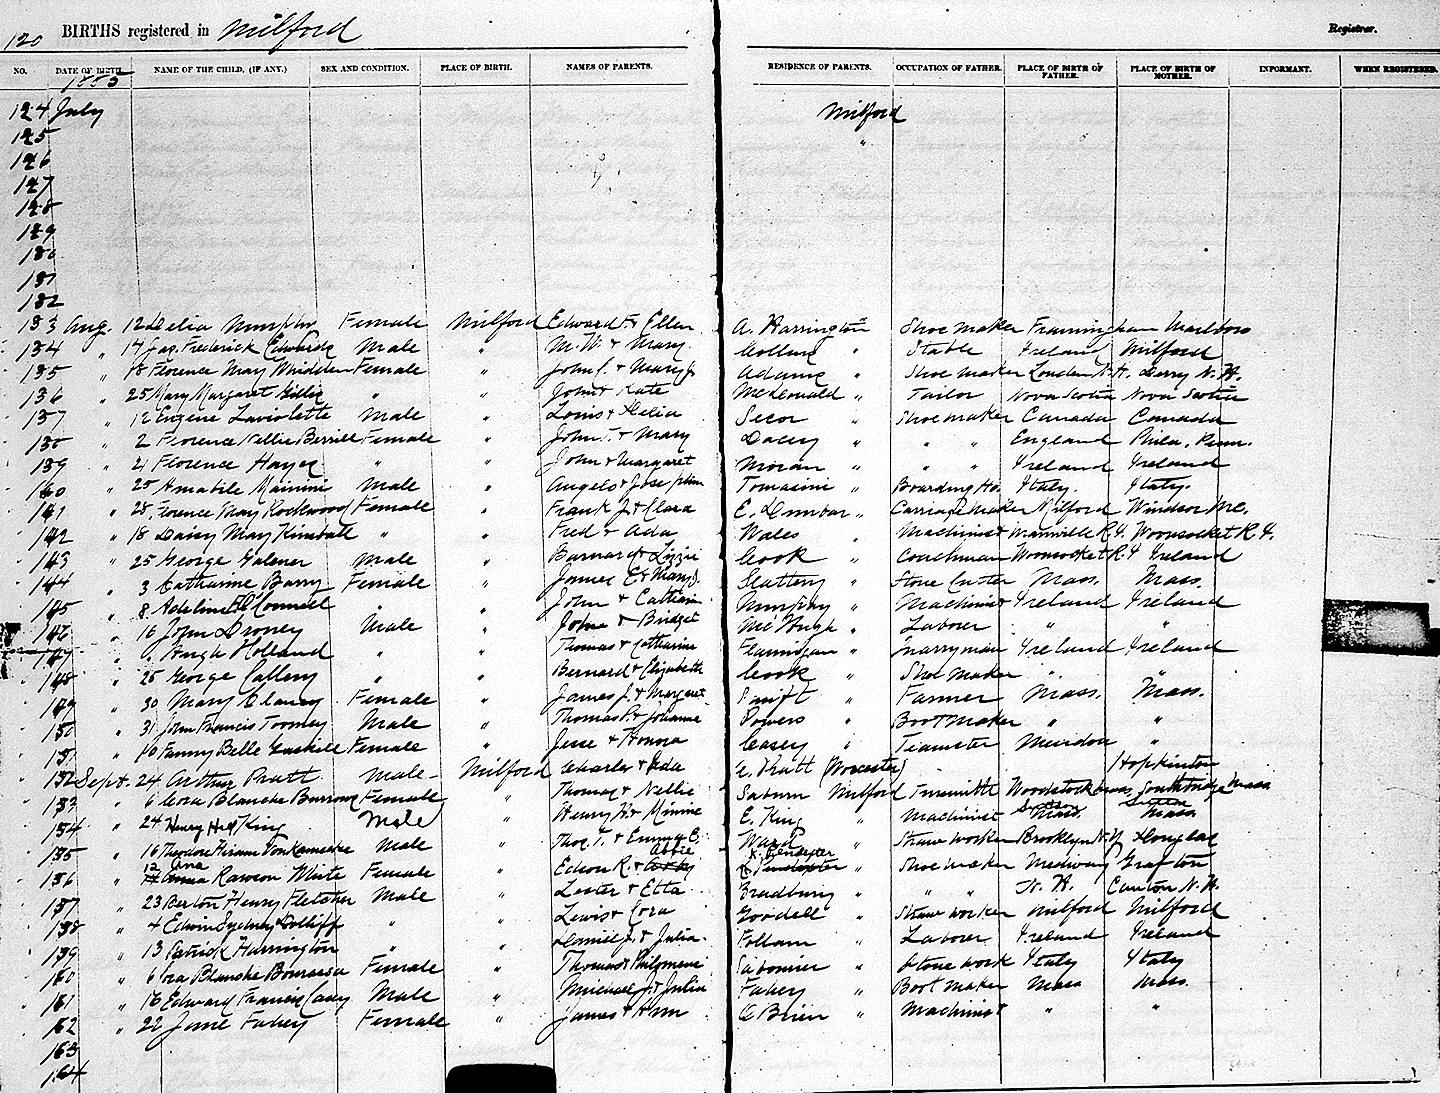 120 BIRTHS registered in Milford Registrar.
NO. DATE OF BIRTH. NAME OF THE CHILD, (IF ANY.) SEX AND CONDITION. PLACE OF BIRTH. NAMES OF PARENTS. RESIDENCE OF PARENTS. OCCUPATION OF FATHER. PLACE OF BIRTH OF FATHER. PLACE OF BIRTH OF MOTHER. INFORMANT. WHEN REGISTERED.
1885
124 July Milford
125 "
126
127
128
129
130
131
132
133 Aug. 12 Delia Murphy Female Milford Edward F. & Ellen A. Harrington " Shoemaker Framingham Marlboro
134 " 17 Jas. Frederick Edwards Male " M. W. & Mary Collins " Stable Ireland Milford
135 " 18 Florence May Whidden Female " John S. & Mary J. Adams " Shoe maker Loudon N.H. Derry N.H.
136 " 25 Mary Margaret Gillis " " John & Kate McDonald " Tailor Nova Scotia Nova Scotia
137 " 12 Eugene Laviolette Male " Louis & Delia Secor " Shoemaker Canada Canada
138 " 2 Florence Nellie Berrill Female " John T. & Mary Dacey " " " England Phila. Penn.
139 " 21 Florence Hayes " " John & Margaret Moran " " " Ireland Ireland
140 " 25 Amabile Mainini Male " Angelo & Josephine Tomasini " Boarding Ho. Italy Italy.
141 " 28 Florence May Rockwood Female " Frank J. & Clara E. Dunbar " Carriage maker Milford Windsor Me.
142 " 18 Daisy May Kimball " " Fred & Ada Wales " Machinist Manville R.I. Woonsocket R.I.
143 " 25 George Galener Male " Barnard & Lizzie Cook " Coachman Woonsocket R.I Ireland
144 " 3 Catharine Barry Female " James E & Mary J. Slattery " Stone Cutter Mass. Mass.
145 " 8 Adeline F. O'Connell " " John & Catharine Murphy " Machinist Ireland Ireland
146 " 16 John Droney Male " John & Bridget McHugh " Laborer " "
147 " " Hugh Holland " " Thomas & Catharine Flannigan " Quarryman Ireland Ireland
148 " 25 George Callery " " Bernard & Elizabeth Cook " Shoe maker " "
149 " 30 Mary Clancy Female " James J. & Margaret Swift " Farmer Mass. Mass.
150 " 31 John Francis Toomey Male " Thomas P. & Johanna Powers " Boot maker " "
151 " 10 Fanny Belle Gaskill Female " Jesse & Honora Casey " Teamster Mendon "
152 Sept. 24 Arthur Pratt Male Milford Charles & Ada Pratt (Worcester) Hopkinton
153 " 6 Cora Blanche Burrows Female " Thomas & Nellie Saburn Milford Tinsmith Woodstock Southbridge Mass
154 " 24 Henry Hill King Male " Henry H. & Minnie E. King " Machinist Mass. Mass
155 " 16 Theodore Hiram Male " Thos. T. & Emma E. Ward " Straw worker Brooklyn N.Y. Douglas
156 " 12 Ana Rawson White Female " Edson R. & Abbie " Shoe maker Medway Grafton
157 " 23 Berton Henry Fletcher Male " Lester & Etta Bradbury " " " N.H. Canton N.H.
158 " 4 Edwin Sydney Jolliff " " Lewis & Cora Goodell " Straw worker Milford Milford
159 " 13 Patrick Harrington " " Daniel J. & Julia Follam " Laborer Ireland Ireland
160 " 6 Ora Blanche Bourassa Female " Thomas & Philomene " Stone work Italy Italy
161 " 16 Edward Francis Casey Male " Michael J. & Julia Fahey " Boot maker Mass Mass.
162 " 22 Jane Fahey Female " James & Ann O'Brien " Machinist " "
163
164